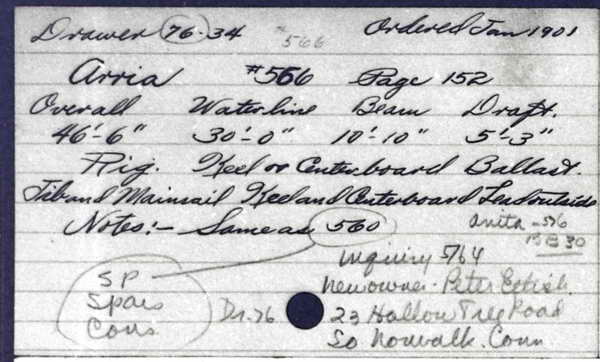 Drawer 76-34 #566 Ordered Jan 1901
Arria #566 Page 152
Overall Waterline Beam Draft.
46'-6" 30'-0" 10'-10" 5'-3"
Rig. Keel or Centerboard Ballast.
Jib and Mainsail Keel and Centerboard Lead outside
Notes:- Same as 560 Anita -576
BB 30
Inquiry 5/64
SP New owner - Peter
Spars Dr. 76 23 Hollow Tree Road
Cons So Norwalk. Conn